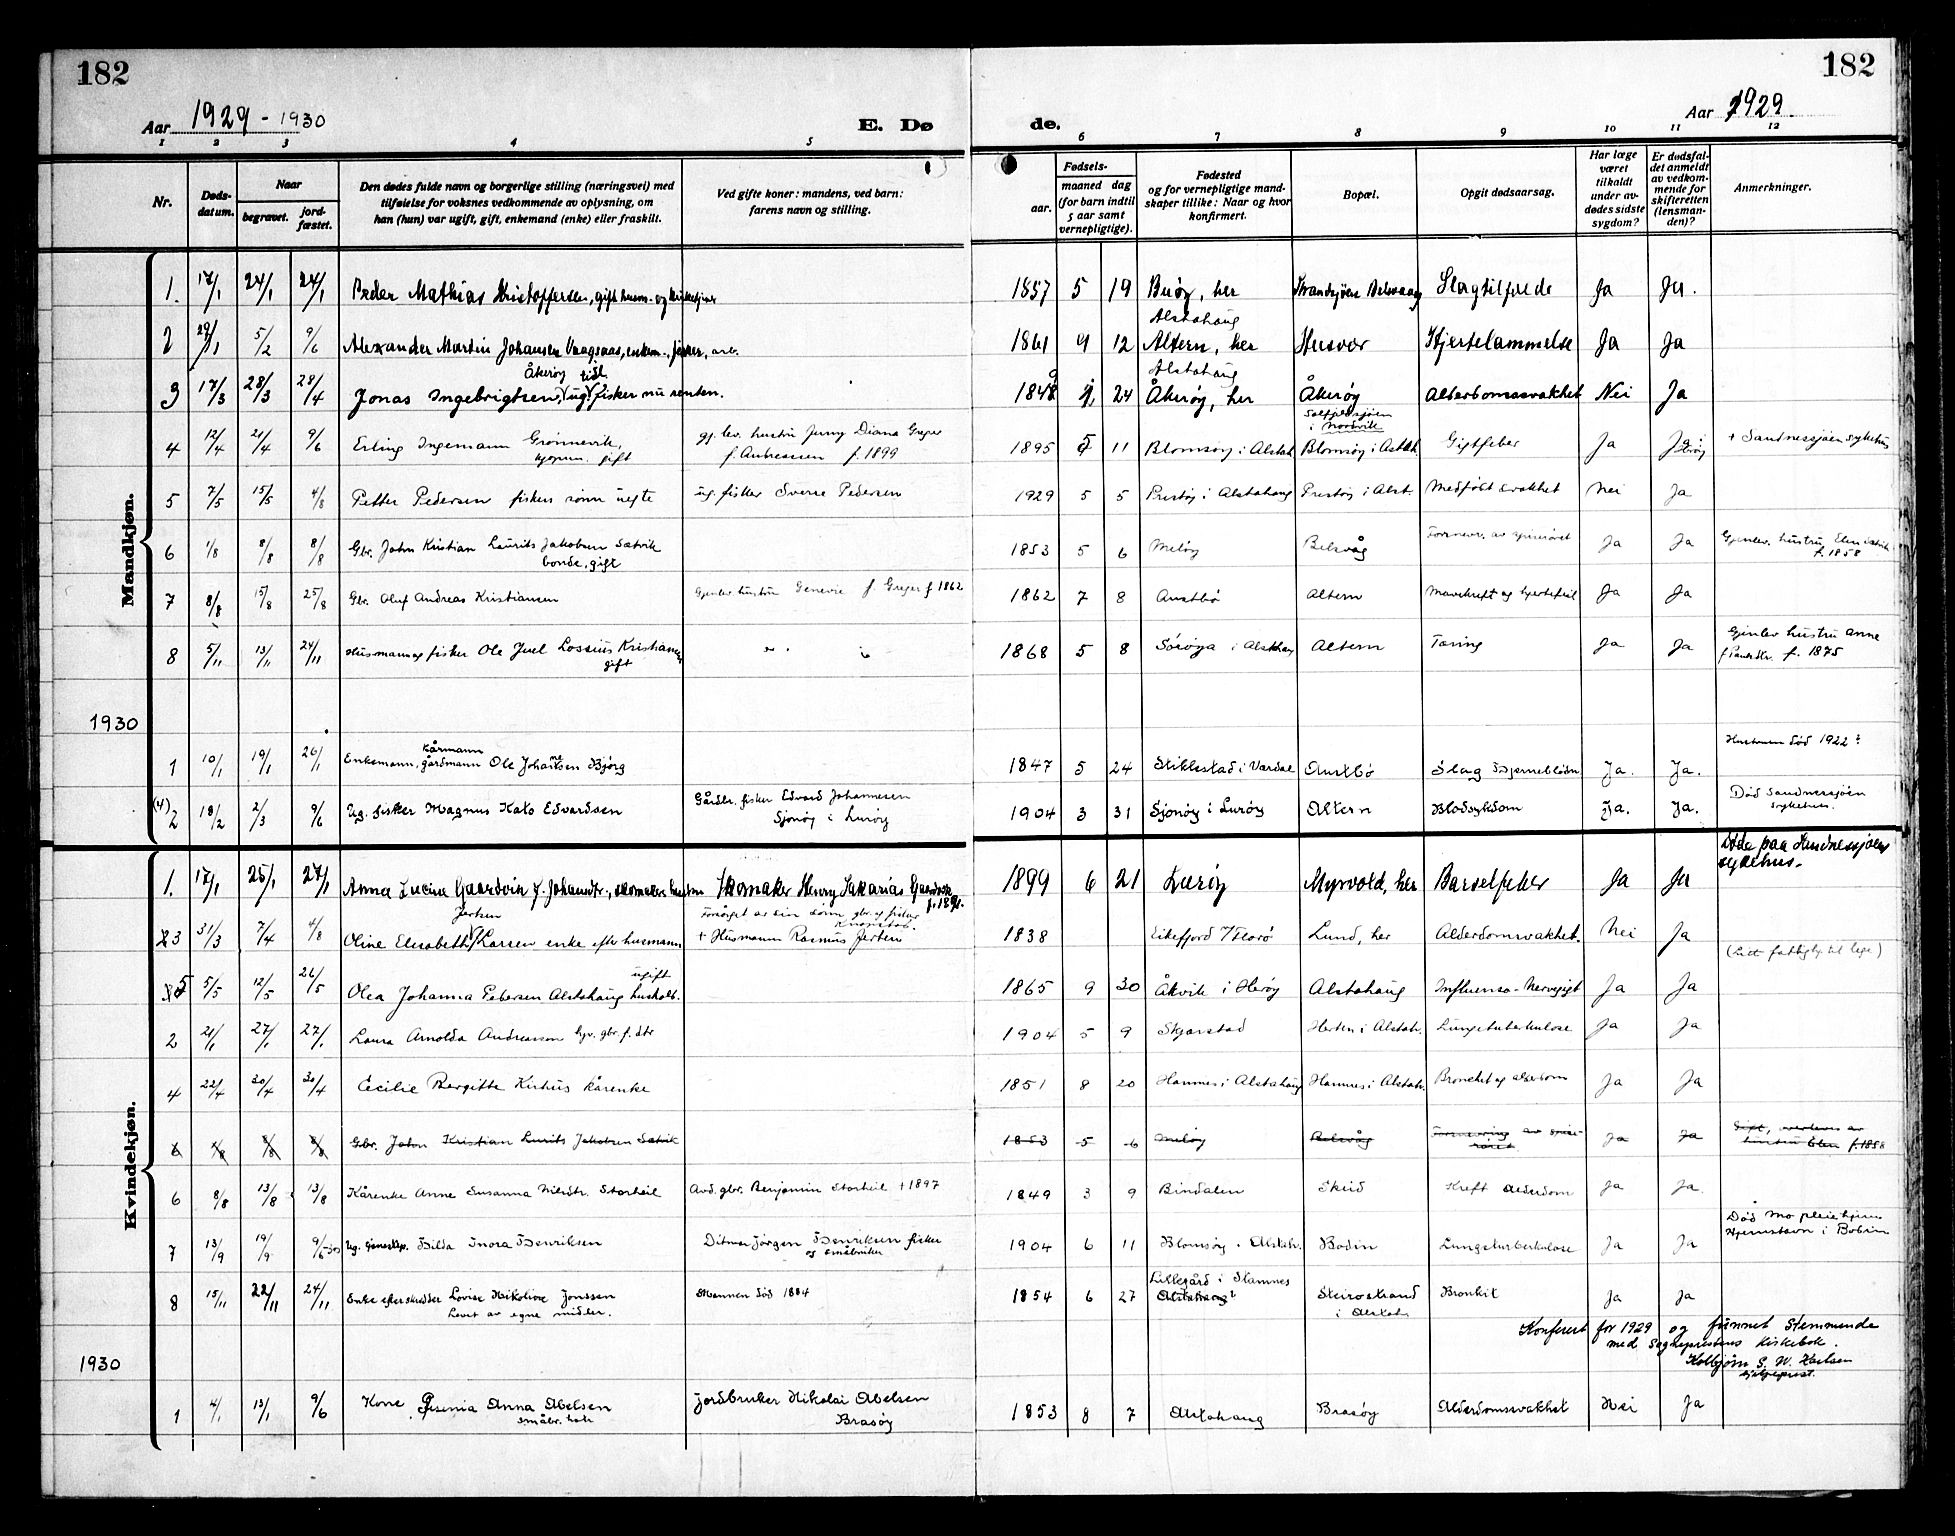 182
182
Aar 1929 - 1930
E. Dø
de.
Aar 1929.
1 2 3 4 5 6 7 8 9 10 11 12
Nr.
Døds-datum.
Naar
begravet.
jord-fæstet.
Den dødes fulde navn og borgerlige stilling (næringsvei) med tilføielse for voksnes vedkommende av oplysning, om han (hun) var ugift, gift, enkemand (enke) eller fraskilt.
Ved gifte koner: mandens, ved barn: farens navn og stilling.
Fødsels-
aar.
maaned dag (for barn indtil 5 aar samt vernepligtige).
Fødested og for vernepligtige mand-skaper tillike: Naar og hvor konfirmert.
Bopæl.
Opgit dødsaarsag.
Har læge været tilkaldt under av-dødes sidste sygdom?
Er dødsfal-det anmeldt av vedkom-mende for skifteretten (lensman-den)?
Anmerkninger.
Mandkjøn.
1. 17/1 24/1 24/1 Peder Mathias Kristoffersen, gift 1857 5 19 Buøy, her Strandsjøen Belsvaag Slagtilfælde Ja Ja.
2 29/1 5/2 9/6 Alexander Martin Johansen Vaagsaas, enkem., fisker, arb. 1861 9 12 Alstahaug Altern, her Husvær Hjertelammelse Ja Ja
3 17/3 28/3 28/4 Jonas Ingebrigtsen, Åkerøy ug. tidl fisker nu renten. 1848 9 24 Alstahaug Åkerøy, her Åkerøy Alderdomssvakhet Nei Ja
4 12/4 21/4 9/6 Erling Ingemann Grønnevik, kjøpm. gift gj. lev. hustru Jenny Diana Greger f. Andreassen f. 1899 1895 5 11 Blomsøy i Alstah. i Nordvik Blomsøy i Alstah. Gigtfeber Ja Ja i Herøy + Sandnessjøen sykehus
5 7/5 15/5 4/8 Petter Pedersen fiskers sønn uegte ug. fisker Sverre Pedersen 1929 5 5 Prestøy i Alstahaug Prestøy i Alst. Medfødt svakhet Nei Ja
6 1/8 8/8 8/8 Gbr. John Kristian Laurits Jakobsen Sætvik bonde, gift 1853 5 6 Meløy Belsvåg Forsnevr. av spiserøret Ja Ja Gjenlev. hustru Elen Sætvik f. 1858
7 8/8 15/8 25/8 Gbr. Oluf Andreas Kristiansen Gjenlev. hustru Genevie f. Greger f 1862 1862 7 8 Austbø Altern Mavekreft og hjertefeil Ja Ja
8 5/11 13/11 24/11 Husmann og fisker Ole Juel Lossius Kristiansen gift 1868 5 8 Sørøya i Alstahaug Altern Tæring Ja Ja Gjenlev hustru Anne f. 1875
1930
1 10/1 19/1 26/1 Enkemann, kårmann gårdmann Ole Johan Olsen Bjørg 1847 5 24 Stiklestad i Værdal Austbø Slag Hjerneblødn Ja. Ja. Hustruen død 1922?
(4) 2 18/2 2/3 9/6 Ug. fisker Magnus Kato Edvardsen Gårdbr. fisker Edvard Johannesen Sjonøy i Lurøy 1904 3 31 Sjonøy i Lurøy Altern Blodsykdom Ja. Ja. Død Sandnessjøen sykehus.
Kvindekjøn.
1. 17/1 25/1 27/1 Anna Lucina Gaardvik f. Johansdtr., skomaker hustru Skomaker Henry Sakarias Gaardvik f. 1891. 1899 6 21 Lurøy Myrvold, her Barselfeber Ja Ja Døde paa Sandnessjøen sykehus.
3 31/3 7/4 4/8 Oline Elisabeth Jertsen Larsen enke efter husmann Forsørget av sin sønn gbr. og fisker + Husmann Rasmus Jertsen 1838 Eikefjord i Florø Lund, her Alderdomsvakhet. Nei Ja (Sett fattiglg. til lege)
5 5/5 12/5 26/5 Olea Johanna Pedersen Alstahaug ugift hushold. 1865 9 30 Åkvik i Herøy Alstahaug Influensa - Nervegigt Ja Ja
2 21/1 27/1 27/1 Laura Arnolda Andreassen hjv. gbr. f. dtr 1904 5 9 Skjærstad Herten i Alstah. Lungetuberkulose Ja Ja
4 22/4 30/4 30/4 Cecilie Bergitte Kirhus kårenke 1851 8 20 Hamnes i Alstahaug Hamnes i Alstah. Bronchit og alderdom Ja Ja
6 1/8 8/8 8/8 Gbr. John Kristian Laurits Jakobsen Sætvik 1853 5 6 Meløy Belsvåg Forsnevring av spiserøret Ja Ja Gift, overleves av hustru Elen f. 1858
6 8/8 13/8 13/8 Kårenke Anne Susanna Nilsdtr. Storheil Avd. gbr. Benjamin Storheil + 1897 1849 3 9 Bindalen Skeid Kreft Alderdom Ja Ja.
7 13/9 19/9 9/6-30 Ug. tjenestep. Hilda Inora Henriksen Ditmar Jørgen Henriksen fisker og småbruker 1904 6 11 Blomsøy i Alstah. Bodin Lungetuberkulose Ja Ja Død Mo pleiehjem Hjernstavn i Bodin
8 15/11 22/11 24/11 Enke efter skredder Lovise Nikoline Jonssen Levet av egne midler. Mannen død 1884 1854 6 27 Lillegård i Stamnes Alstahaug Steirostrand i Alstah. Bronkit Ja Ja
Konferert for 1929 og funnet stemmende
med Sogneprestens kirkebok.
Kolbjørn S. W. Karlsen
hjelpeprest.
1930
1 4/1 13/1 9/6 Kone Efsenia Anna Abelsen småbr. kone Jordbruker Nikolai Abelsen Brasøy 1853 8 7 Alstahaug Brasøy Alderdomssvakhet Nei Ja